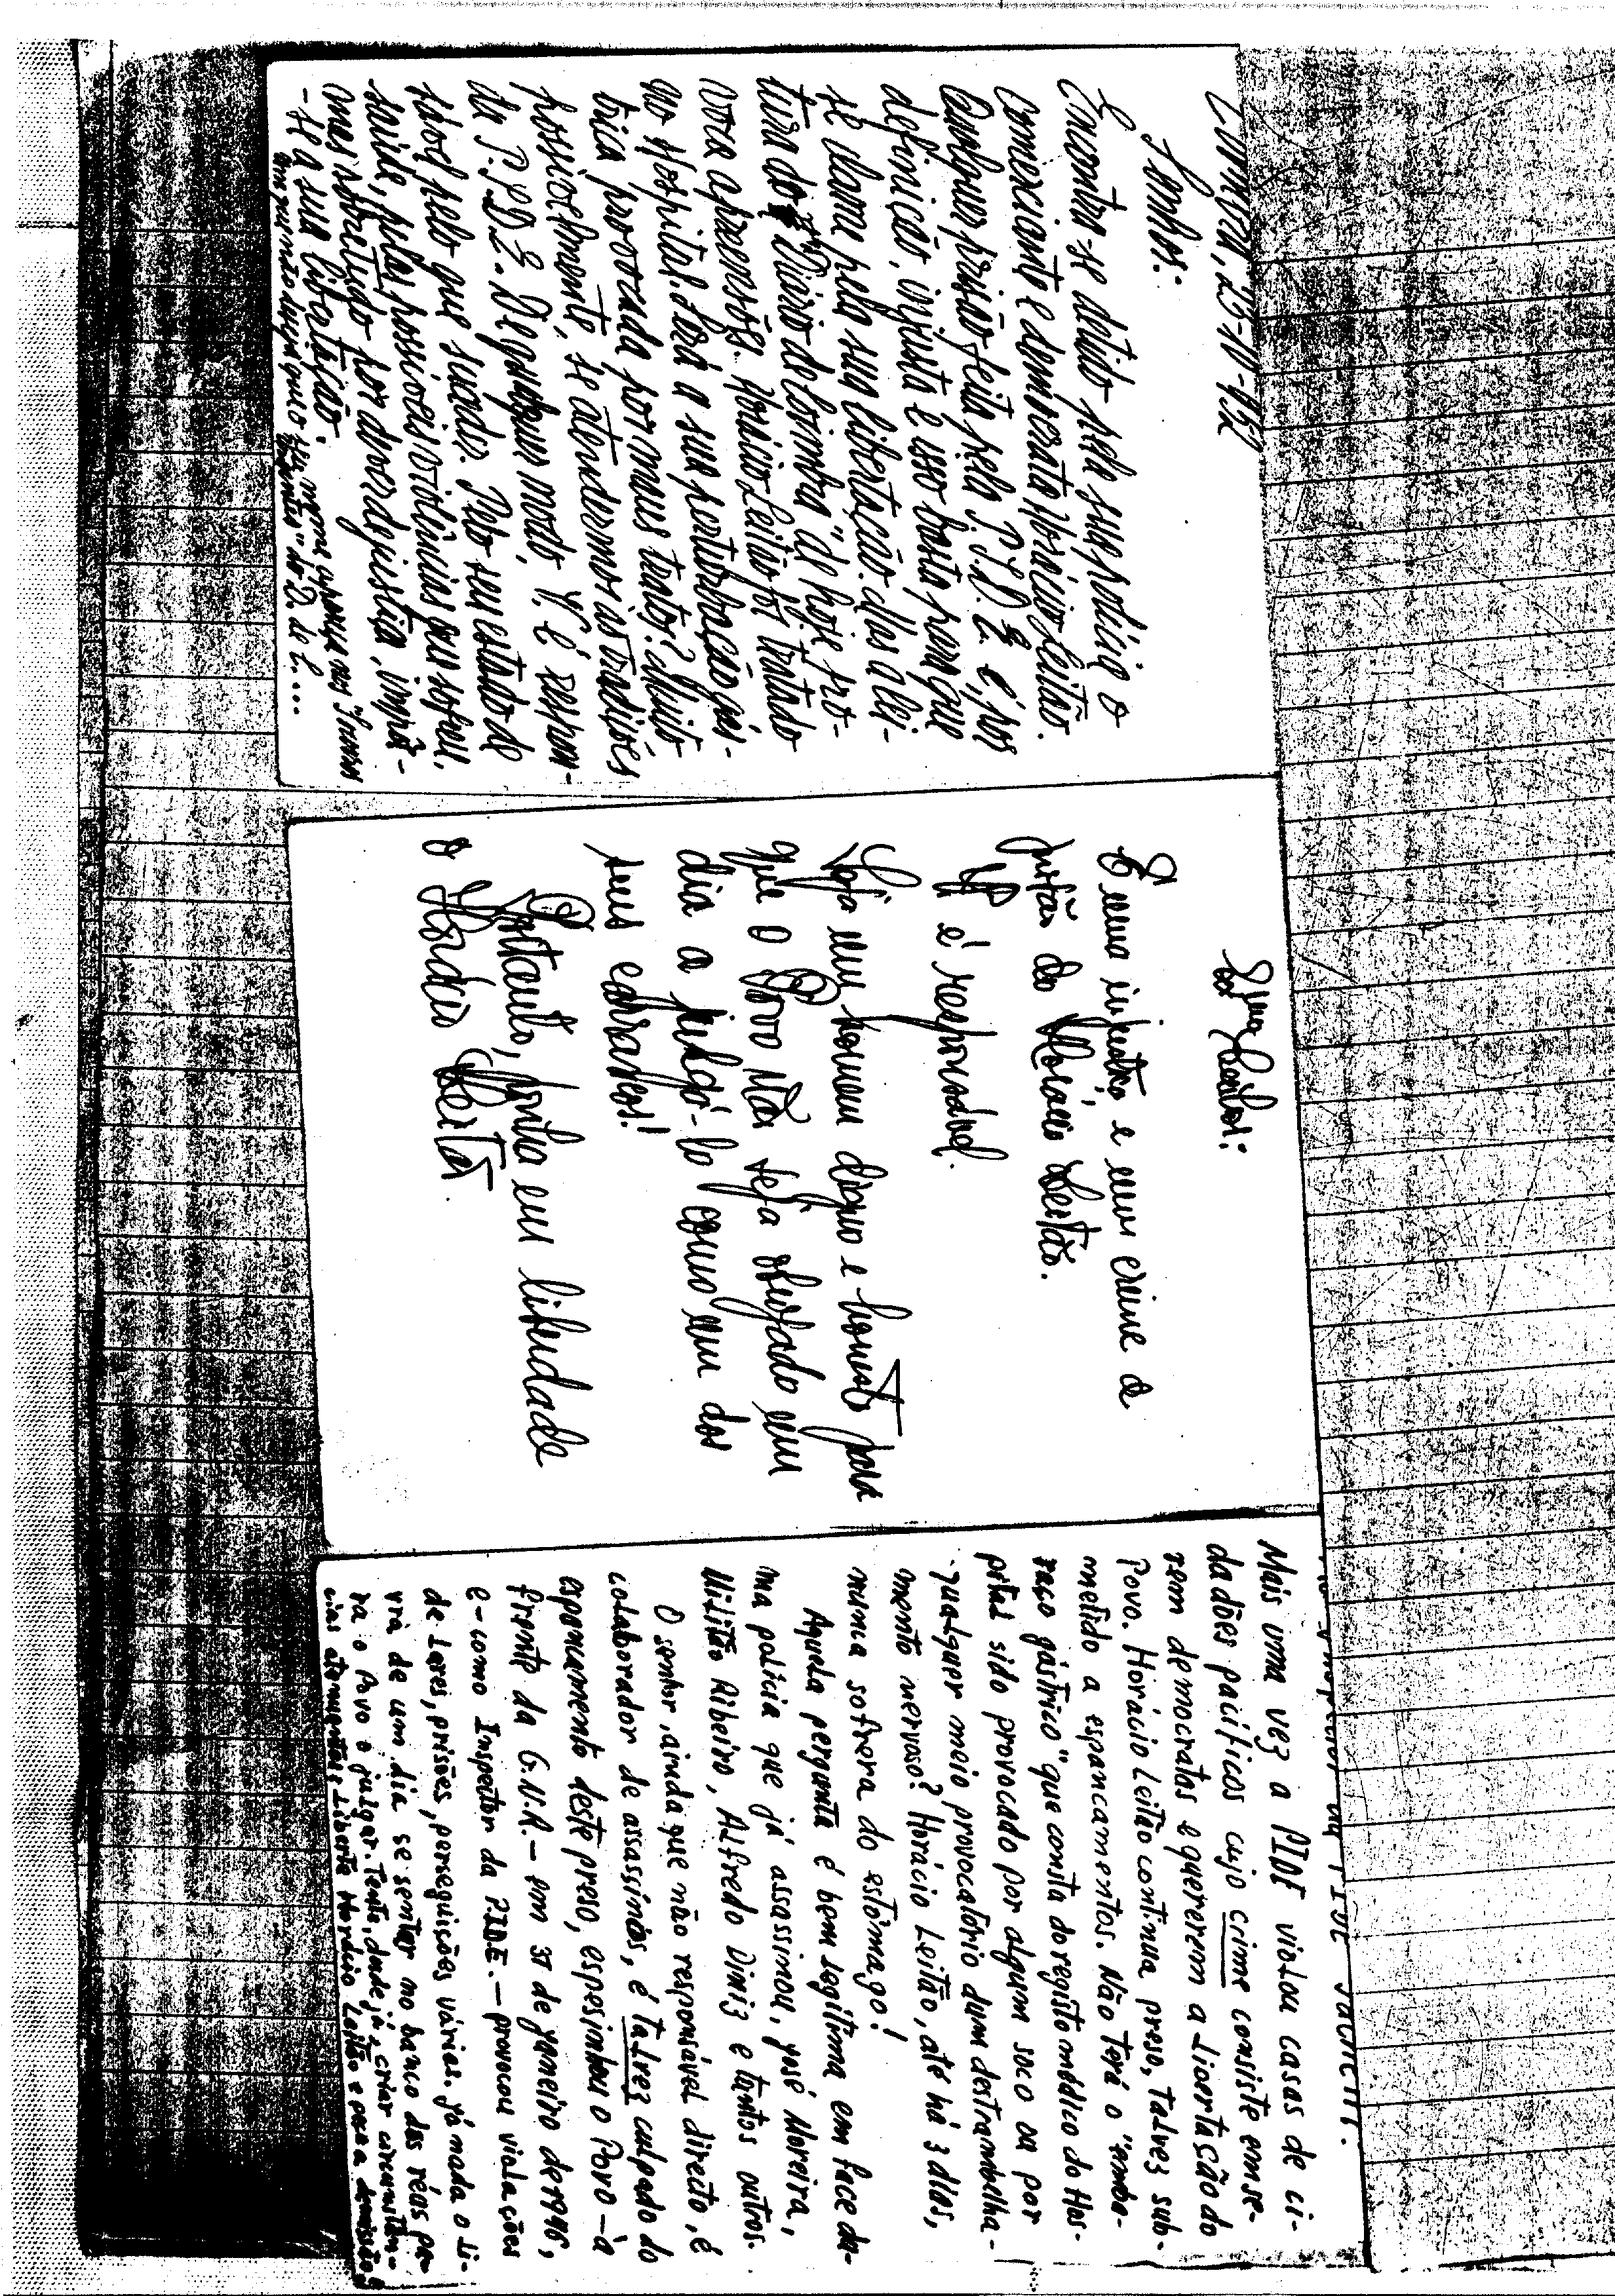 23-10-952
Senhor:
Encontra-se detido pela sua polícia o
comerciante e democrata Horácio Leitão.
Qualquer prisão feita pela P.I.D.E. é, por
definição, injusta e isso basta para que
se clame pela sua libertação. Mas a lei-
tura do "Diário de Coimbra" de hoje pro-
voca apreensões. Horácio Leitão foi tratado
no Hospital. Será a sua perturbação gás-
trica provocada por maus tratos? Muito
possivelmente, se atendermos às tradições
da P.I.D.E. De qualquer modo, V. é respon-
sável pelo que suceder. Pelo seu estado de
saúde, pelas possíveis violências que sofreu,
mas sobretudo por dever de justiça, impõe-
-se a sua libertação.
que o seu nome apareça nos
do D. de C....
Snr.
É uma injustiça e um crime a
prisão do Horácio Leitão.
V. é responsável.
Seja um homem digno e honesto para
que o Povo não seja obrigado um
dia a julgá-lo como um dos
seus carrascos!
Portanto, ponha em liberdade
o Horácio Leitão.
Mais uma vez a PIDE violou casas de ci-
dadões pacíficos cujo crime consiste em se-
rem democratas e quererem a Libertação do
Povo. Horácio Leitão continua preso, talvez sub-
metido a espancamentos. Não terá o "emba-
raço gástrico" que consta do registo médico do Hos-
pital sido provocado por algum soco ou por
qualquer meio provocatório dum destrambelha-
mento nervoso? Horácio Leitão, até há 3 dias,
nunca sofrera do estômago!
Aquela pergunta é bem legítima em face du-
ma polícia que já assassinou José Moreira,
Militão Ribeiro, Alfredo Diniz e tantos outros.
O senhor, ainda que não responsável directo, é
colaborador de assassinos, é talvez culpado do
espancamento deste preso, espesinhou o Povo - à
frente da G.N.R. - em 31 de janeiro de 1946,
e - como Inspector da PIDE. - provocou violações
de lares, prisões, perseguições várias. Já nada o li-
vra de um dia se sentar no banco dos réus pa-
ra o Povo o julgar. Tente, desde já, criar circunstân-
cias atenuantes: Liberte Horácio Leitão e peça a demissão